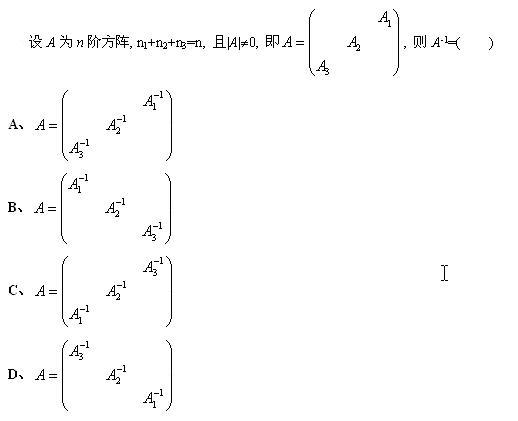 设 A 为 n 阶方阵, n₁+n₂+n₃=n, 且|A|≠0, 即 A = ( A₁ A₂ A₃ ) , 则 A⁻¹=( )
A、 A = ( A₁⁻¹ A₂⁻¹ A₃⁻¹ )
B、 A = ( A₁⁻¹ A₂⁻¹ A₃⁻¹ )
C、 A = ( A₃⁻¹ A₂⁻¹ A₁⁻¹ )
D、 A = ( A₃⁻¹ A₂⁻¹ A₁⁻¹ )